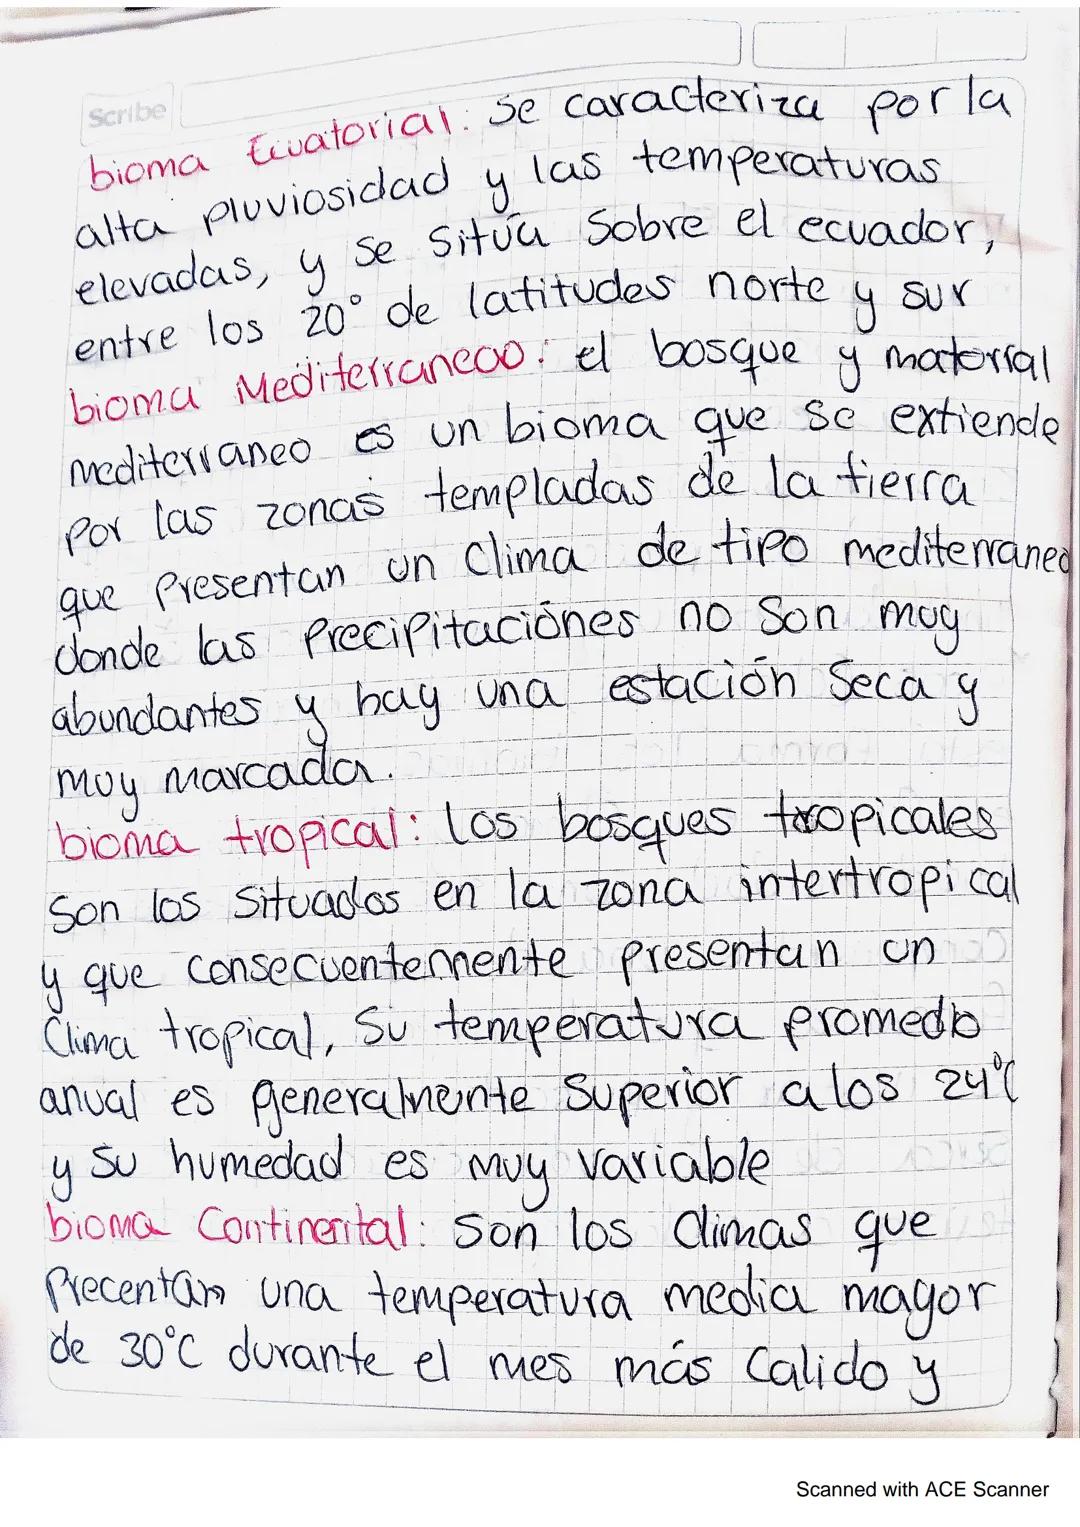 Scribe
bioma Ecuatorial: Se caracteriza por la
alta pluviosidad y las temperaturas
elevadas, y se sitúa sobre el ecuador,
entre los 20° de latitudes norte y sur
bioma Mediterraneoo: el bosque y matorral
mediterraneo es un bioma que se extiende
por las zonas templadas de la tierra
que presentan un clima de tipo mediterraneo
donde las precipitaciónes no son muy
abundantes y hay una estación seca y
muy marcada.
bioma tropical: los bosques tropicales
son los situados en la zona intertropical
y que consecuentemente presentan un
clima tropical, su temperatura promedio
anual es generalmente superior a los 24°C
y su humedad es muy variable
bioma Continental: Son los climas que
precentan una temperatura media mayor
de 30°C durante el mes más calido y
Scanned with ACE Scanner